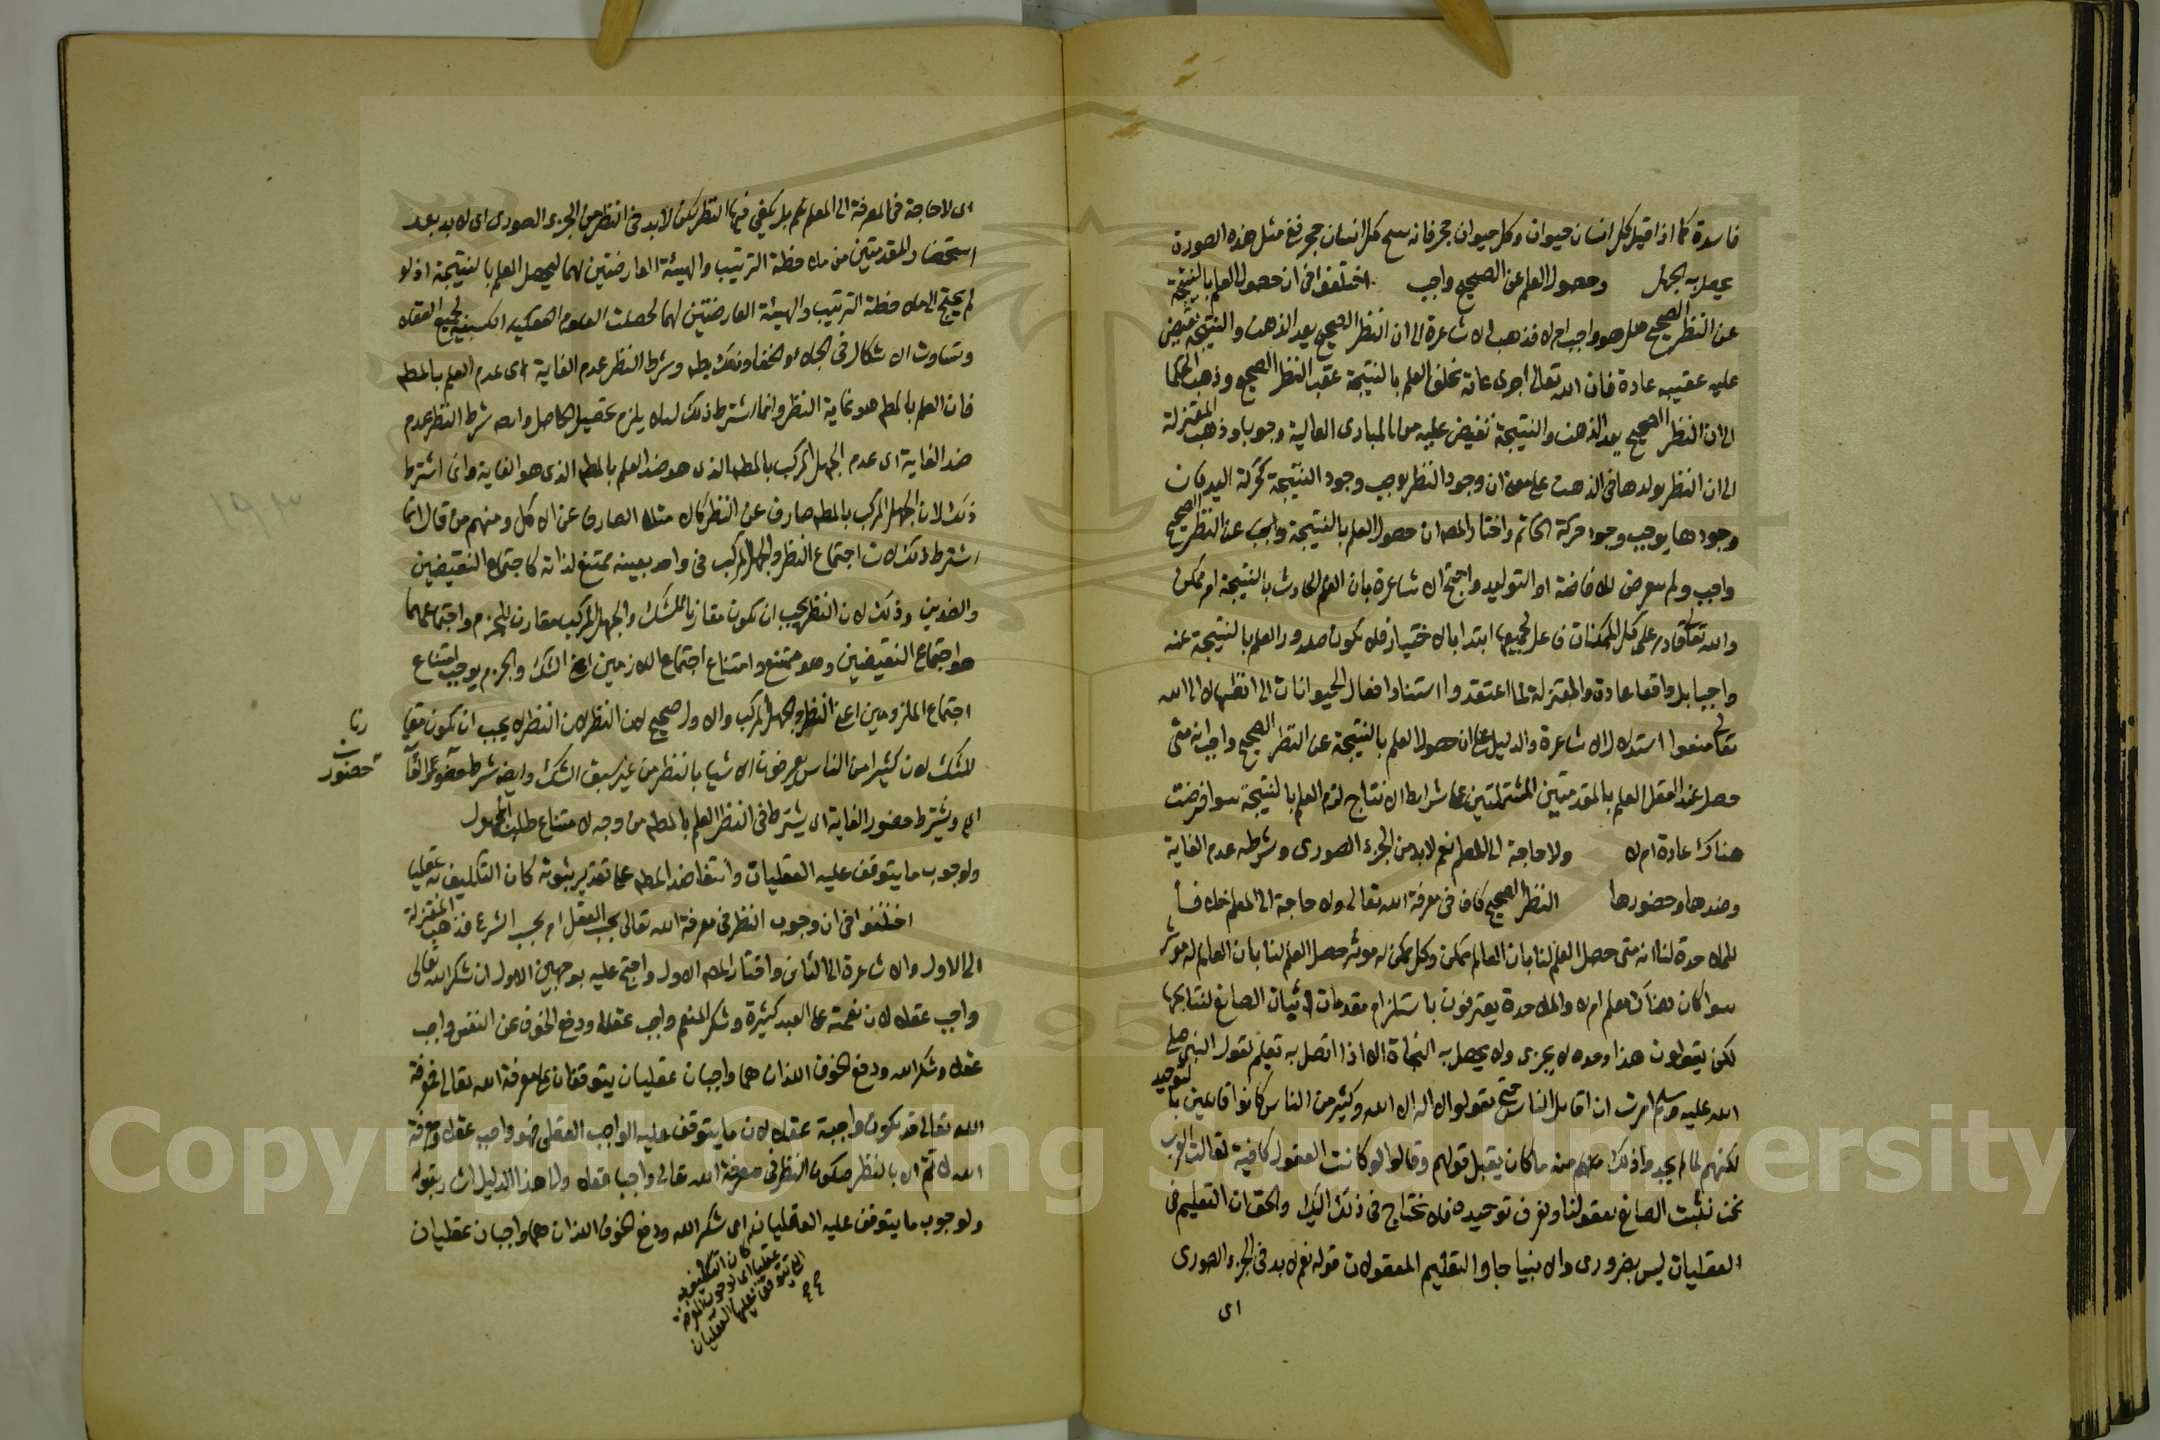 فاسدة كما اذا قيل كل انسان حيوان وكل حيوان حجر فانه ينتج كل انسان حجر ففى مثل هذه الصورة
يحصل به الجهل وحصول العلم عن الصحيح واجب اختلفوا فى ان حصول العلم بالنتيجة
عن النظر الصحيح هل هو واجب ام لا فذهب الاشاعرة الى ان النظر الصحيح يعد الذهن والنتيجة تفيض
عليه عقيبه عادة فان الله تعالى اجرى عادته بخلق العلم بالنتيجة عقب النظر الصحيح وذهب الحكما
الى ان النظر الصحيح يعد الذهن والنتيجة تفيض عليه من المبادى العالية وجوبا وذهب المعتزلة
الى ان النظر يولدها فى الذهن على معنى ان وجود النظر يوجب وجود النتيجة كحركة اليد فان
وجودها يوجب وجود حركة الخاتم واختار المص ان حصول العلم بالنتيجة واجب عن النظر الصحيح
واجب ولم يتعرض للافاضة او التوليد واحتج الاشاعرة بان العلم الحادث بالنتيجة امر ممكن
والله تعالى قادر على كل الممكنات فاعل لجميعها ابتدا بالاختيار فلا يكون صدور العلم بالنتيجة عنه
واجبا بل واقعا عادة والمعتزلة لما اعتقدوا استناد افعال الحيوانات الى انفسها لا الى الله
تعالى منعوا استدلال الاشاعرة والدليل على ان حصول العلم بالنتيجة عن النظر الصحيح واجب انه متى
حصل عند العقل العلم بالمقدمتين المشتملتين على شرايط الانتاج لزم العلم بالنتيجة سوا فرضت
هناك عادة ام لا ولا حاجة الى المعلم نعم لابد من الجزء الصورى وشرطه عدم الغاية
وضدها وحضورها النظر الصحيح كاف فى معرفة الله تعالى ولا حاجة الى المعلم خلافا
للملاحدة لنا انه متى حصل العلم لنا بان العالم ممكن وكل ممكن له موثر حصل العلم لنا بان العالم له موثر
سوا كان هناك معلم ام لا والملاحدة يعترفون باستلزام مقدمات اثبات الصانع لنتايجها
لكن يقولون هذا وحده لا يجزى ولا يحصل به النجاة الا اذا اتصل به تعليم لقول النبى صلى
الله عليه وسلم امرت ان اقاتل الناس حتى يقولوا لا اله الا الله وكثير من الناس كانوا قائلين بالتوحيد
لكنهم لما لم يجدوا ذلك منه ما كان يقبل قولهم وقالوا لو كانت العقول كافية لقالت العرب
نحن نثبت الصانع بعقولنا ونعرف توحيده فلا نحتاج فى ذلك اليك والحق ان التعليم فى
العقليات ليس بضرورى والانبيا جاوا لتعليم المعقولات قوله نعم لابد فى الجزء الصورى
اى
اى لا حاجة فى المعرفة الى المعلم نعم بل يكفى فيها النظر لكن لابد فى النظر من الجزء الصورى اى لابد بعد
استحضار المقدمتين من ملاحظة الترتيب والهيئة العارضتين لهما ليحصل العلم بالنتيجة اذ لو
لم يحتج الى ملاحظة الترتيب والهيئة العارضتين لهما لحصلت العلوم الكسبية لجميع العقلا
وتفاوت الاشكال فى الجلاء والخفا وشرط النظر عدم الغاية اى عدم العلم بالمط
فان العلم بالمط هو غاية النظر وانما اشترط ذلك لئلا يلزم تحصيل الحاصل وايضا شرط النظر عدم
ضد الغاية اى عدم الجهل المركب بالمط الذى هو ضد العلم بالمط الذى هو الغاية وانما اشترط
ذلك لان الجهل المركب بالمط صارف عن النظر كالامتلا الصارف عن الاكل ومنهم من قال انما
اشترط ذلك لان اجتماع النظر والجهل المركب فى واحد بعينه ممتنع لذاته كاجتماع النقيضين
والضدين وذلك لان النظر يجب ان يكون مقارنا للشك والجهل المركب مقارن للجزم واجتماعهما
هو اجتماع النقيضين وهو ممتنع وامتناع اجتماع اللازمين اعنى الشك والجزم يوجب امتناع
اجتماع الملزومين اعنى النظر والجهل المركب والاول صحيح لان النظر لان النظر لا يجب ان يكون مقارنا
للشك لان كثيرا من الناس يعرضون الاشيا بالنظر من غير سبق الشك وايضا شرط حضور الغاية
حضور
اى ويشترط حضور الغاية اى يشترط فى النظر العلم بالمط من وجه لامتناع طلب المجهول
ولوجوب ما يتوقف عليه العقليات وانتفا ضد المط على تقدير ثبوته كان التكليف به عقليا
اختلفوا فى ان وجوب النظر فى معرفة الله تعالى بحسب العقل ام بحسب الشرع فذهب المعتزلة
الى الاول والاشاعرة الى الثانى واختار المص الاول واحتج عليه بوجهين الاول ان شكر الله تعالى
واجب عقلا لان نعمته على العبد كثيرة وشكر المنعم واجب عقلا ودفع الخوف عن النفس واجب
عقلا وشكر الله ودفع الخوف اللذان هما واجبان عقليان يتوقفان على معرفة الله تعالى فمعرفة
الله تعالى قد يكون واجبة عقلا لان ما يتوقف عليه الواجب العقلى فهو واجب عقلا ومعرفة
الله لا تتم الا بالنظر فيكون النظر فى معرفة الله تعالى واجبا عقلا والى هذا الدليل اشار بقوله
ولوجوب ما يتوقف عليه العقليان اى شكر الله ودفع الخوف اللذان هما واجبان عقليان
كان التكليف به
عقليا اى لوجوب المعرفة
التى يتوقف عليها العقليان